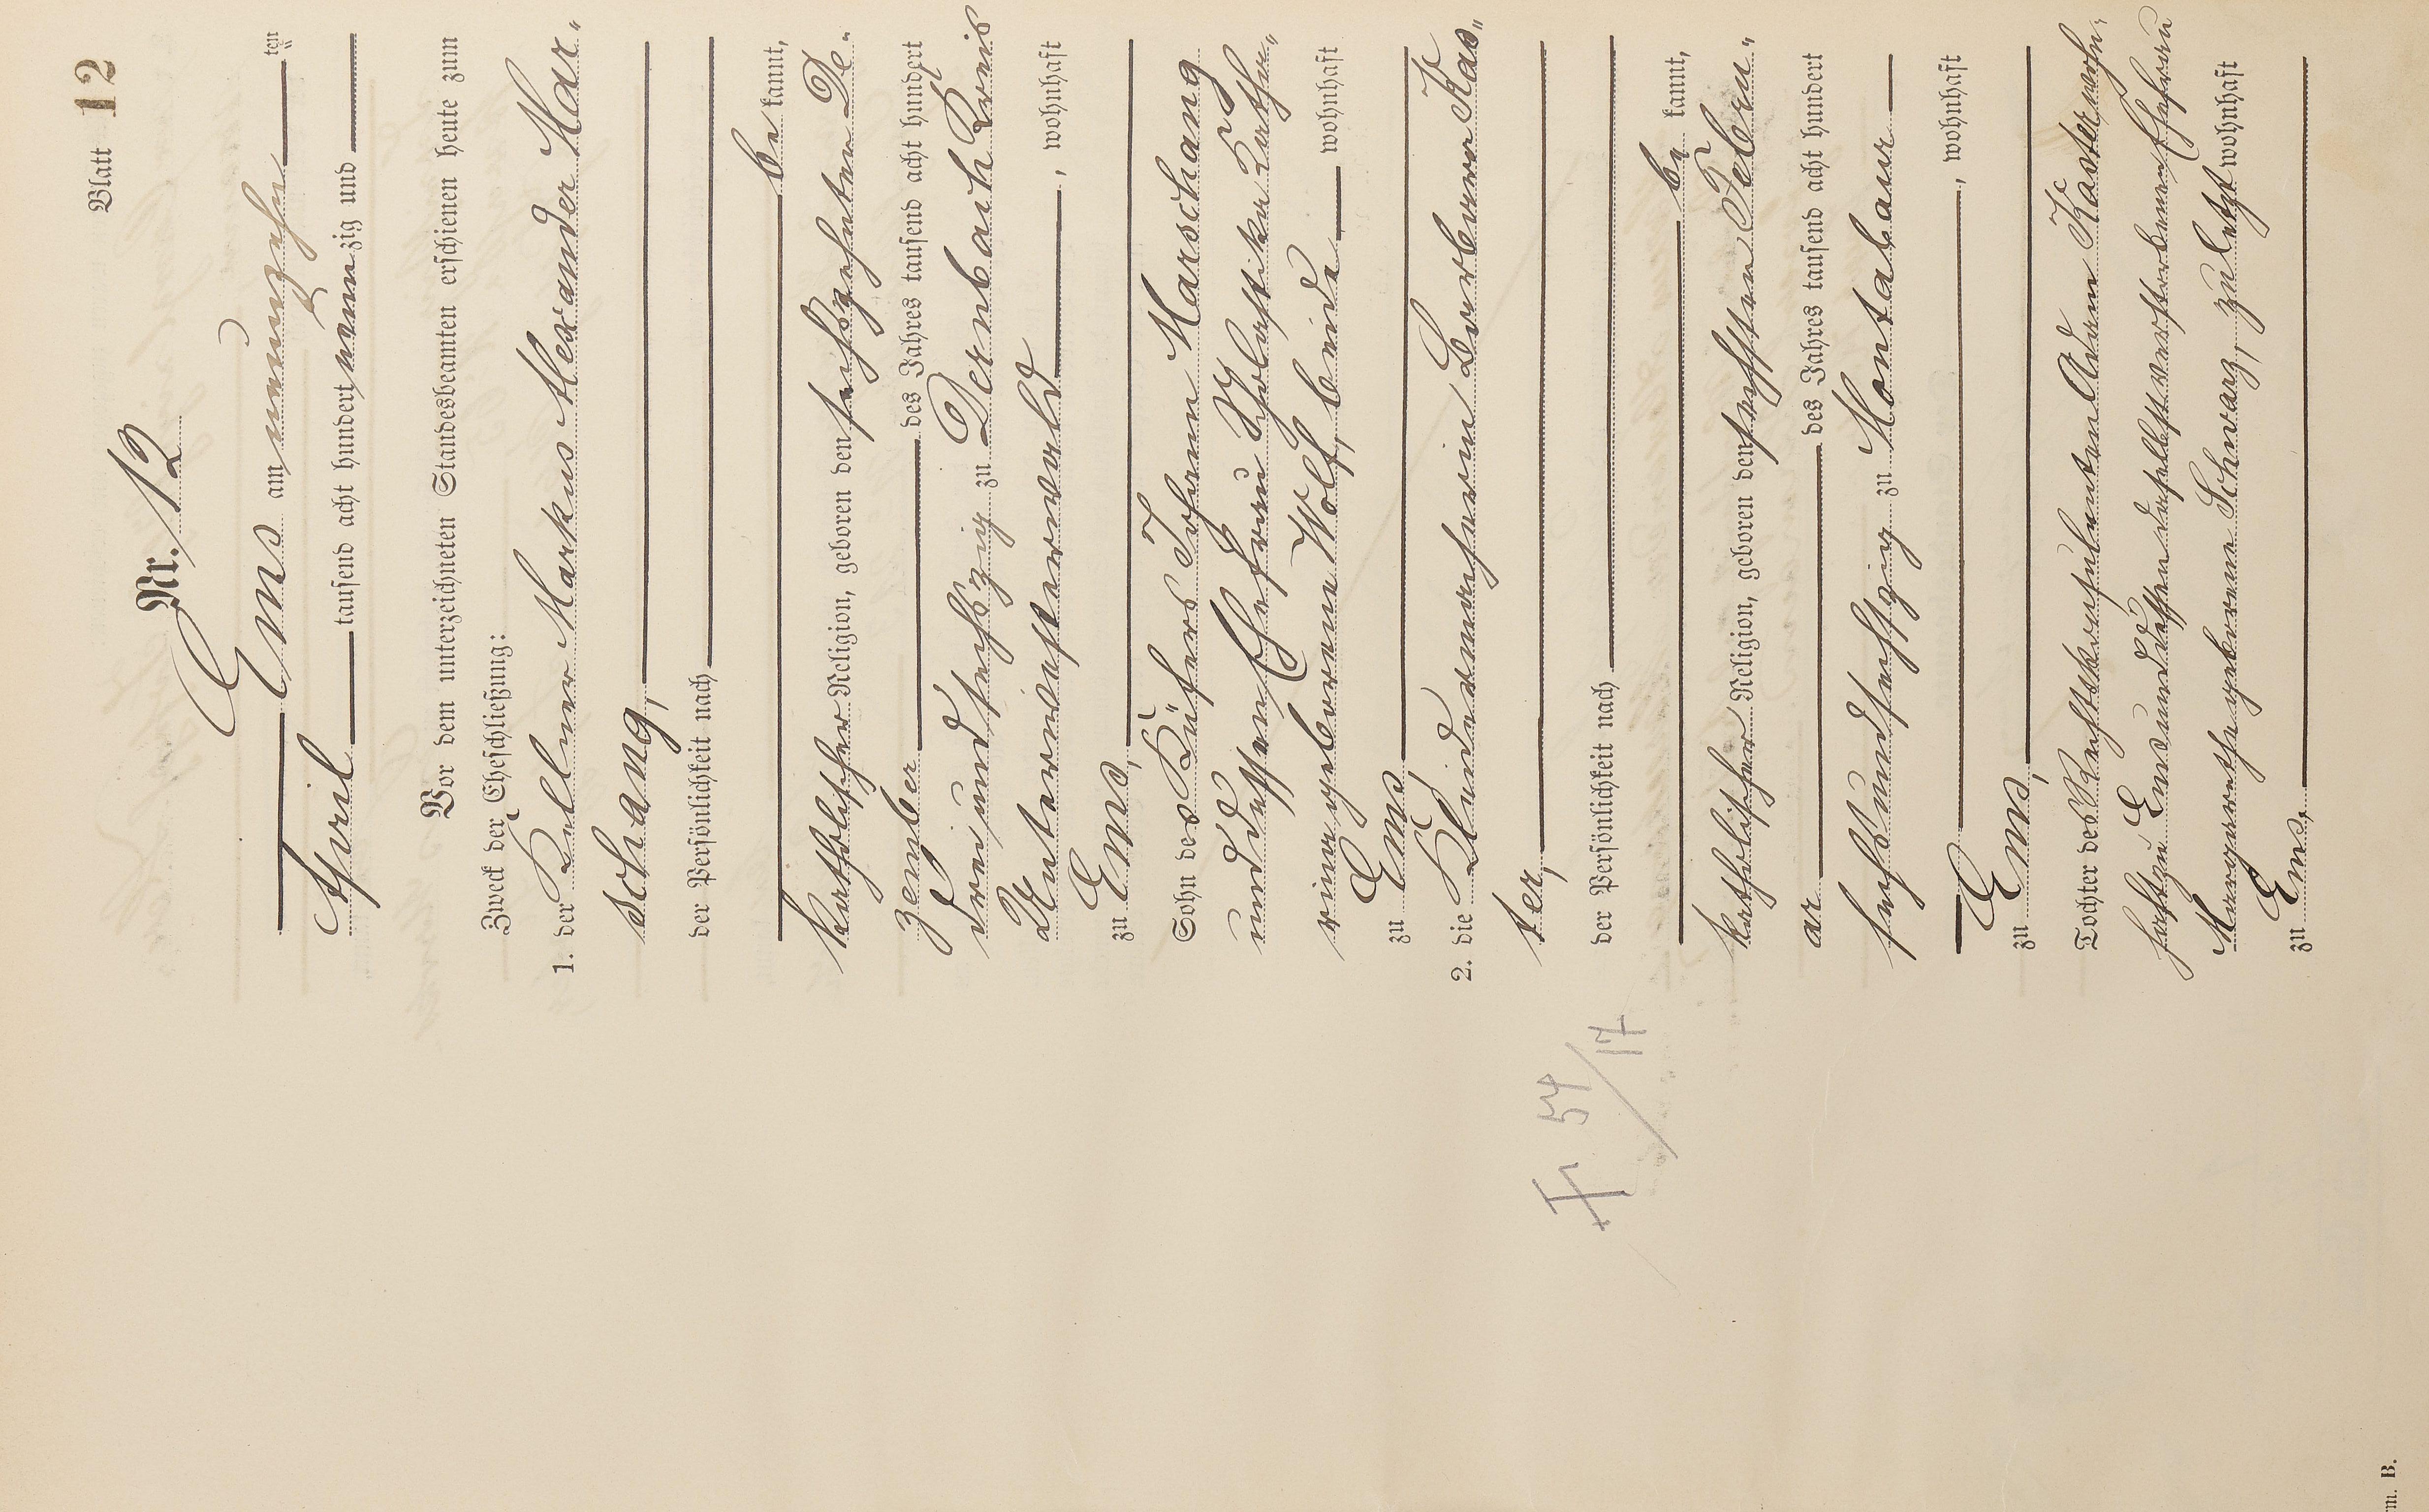 Blatt 12
Nr. 12
Ems am neunzehn ten
April tausend acht hundert neunzig und
Vor dem unterzeichneten Standesbeamten erschienen heute zum
Zweck der Eheschließung:
1. der Kellner Markus Alexander Mar-
schang,
der Persönlichkeit nach
be kannt,
katholischer Religion, geboren den sechszehnten De-
zember des Jahres tausend acht hundert
drei und sechszig zu Dernbach Kreis
Unterwesterwald, wohnhaft
zu Ems,
Sohn des Küfers Johann Marschang
und dessen Ehefrau Scholastika Katha-
rina geborene Wolf, beide wohnhaft
zu Ems,
2. die Kleidermacherin Barbara Kas-
ter,
der Persönlichkeit nach
be kannt,
katholischer Religion, geboren den sechsten Febru-
ar des Jahres tausend acht hundert
sechsundsechszig zu Montabaur
, wohnhaft
zu Ems,
Tochter des Rechtskonsulenten Adam Kaster wohn-
haft zu Ems und dessen daselbst verstorbenen Ehefrau
Margaretha geborene Schwarz, zuletzt wohnhaft
zu Ems.
54/17
B.